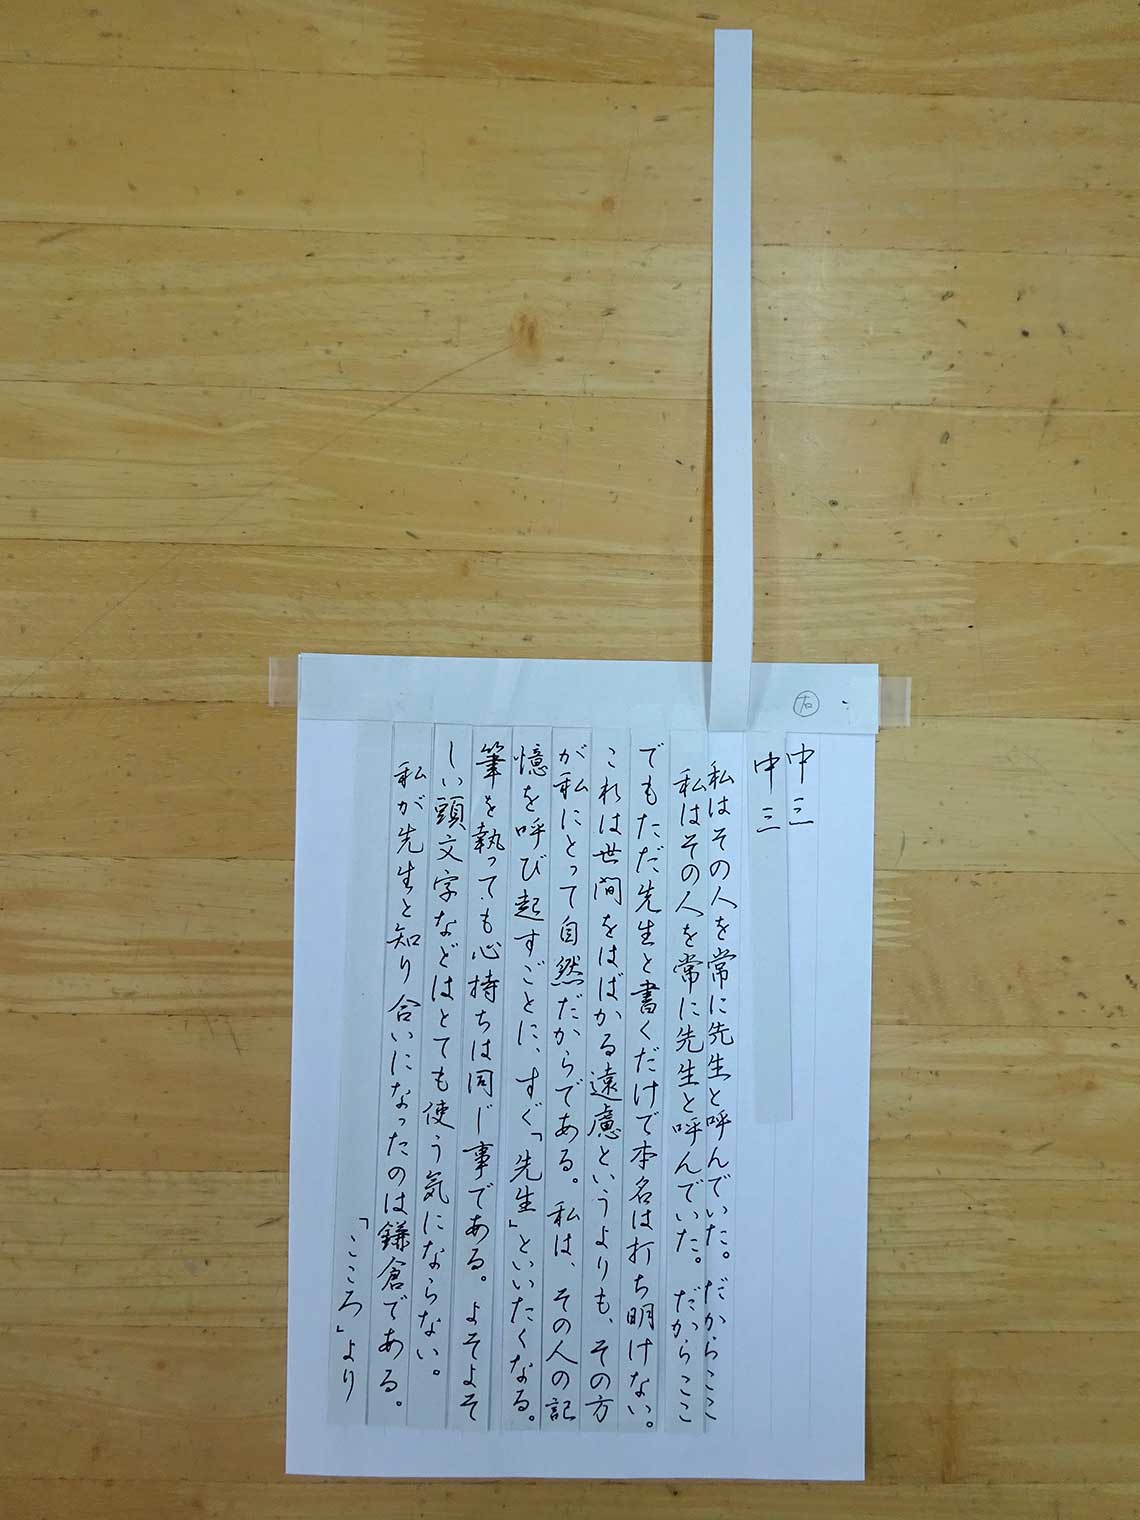 右
中三
中三
私はその人を常に先生と呼んでいた。だからここ
私はその人を常に先生と呼んでいた。だからここ
でもただ先生と書くだけで本名は打ち明けない。
これは世間をはばかる遠慮というよりも、その方
が私にとって自然だからである。私は、その人の記
憶を呼び起すごとに、すぐ「先生」といいたくなる。
筆を執っても心持ちは同じ事である。よそよそ
しい頭文字などはとても使う気にならない。
私が先生と知り合いになったのは鎌倉である。
「こころ」より